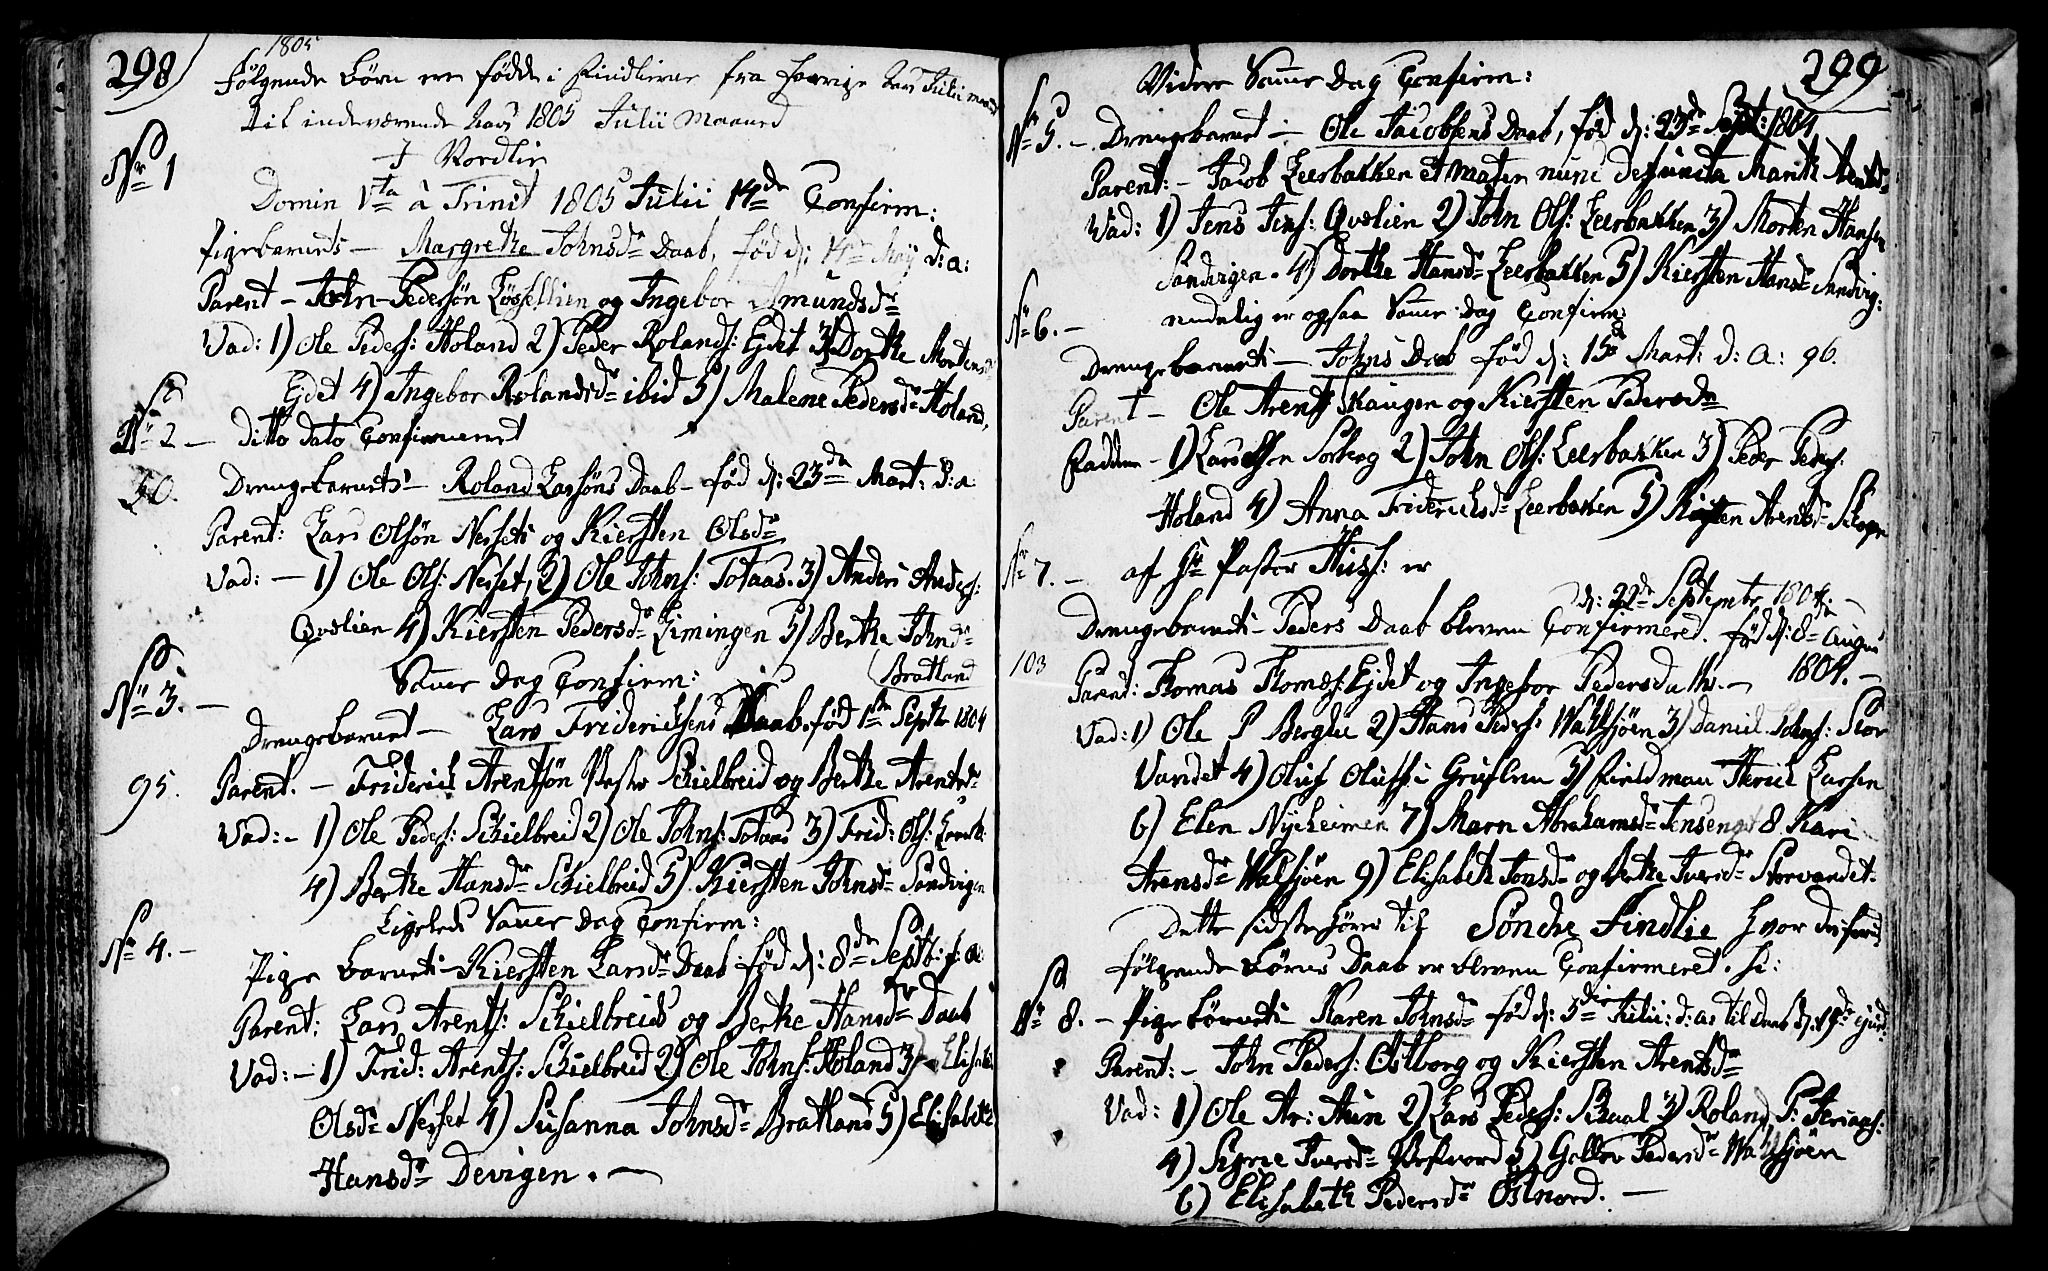 298
1805
Følgende børn ere fødde i Findlierne fra forrige Aars Julii maaned
til indeværende Aars 1805 Julii Maaned
I Nordlie
No 1
Domin Vta à Trinit 1805 Julii 14de Confirm:
Pigebarnets - Margrethe Johnsdr Daab, fød d: May d: a:
Parent - John Pedersøn Løssellien og Ingebor Amundsdr
Vad: 1) Ole Peders: Holand 2) Peder Rolands: Ejdet 3) Dorthe Mortensdr
Ejdet 4) Ingebor Rolandsdr ibid 5) Malene Pedersdr Holand,
No 2 - ditto dato Confirmeret
50. Drengebarnets - Roland Larsøns Daab - fød d: 23de Mart: d: a
Parent: Lars Olsøn Nesset og Kiersten Olsdr
Vad: - 1) Ole Ols: Nesset, 2) Ole Johns: Totaas. 3) Anders Anders:
Qvelien 4) Kiersten Pedersdr Limingen 5) Berthe Johnsdr
Bratland
Samme dag Confirm:
No 3. -
Drengebarnet - Lars Friderichsens Daab. fød 1ste Septbr 1804
95. Parent. - Friderich Arentsøn Skielbreid og Berthe Arentsdr
Vad: - 1) Ole Peders: Skielbreid 2) Ole Johns: Totaas 3) Frid: Ols:
4) Berthe Hansdr Skielbreid 5) Kiersten Johnsdr Sandvigen
Ligeleds Samme dag Confirm:
No 4. -
Pige barnets - Kiersten Larsdr Daab fød d: 8de Septb: f: a:
Parent: Lars Arents: Skielbreid og Berthe Hansdr Daab
Vad: - 1) Frid: Arents: Skielbreid 2) Ole Johns: Holand 3) Elisabeth
Olsdr Nesset 4) Susanna Johnsdr Bratland 5) Elisabeth
Hansdr Devigen. -
299
Videre Samme dag Confirm:
No 5. - Drengebarnet - Ole Jacobsens Daab, fød d: 23de Sept: 1804
Parent: - Jacob Leerbakken et mater nunc defuncta Marith Arentsdr
Vad: 1) Jens Jens: Qvelien 2) John Ols: Leerbakken 3) Morten Hansen
Sandvigen. 4) Dorthe Hansdr Leerbakken 5) Kiersten Hansdr Sandvig:
No 6. - endelig er ogsaa Samme dag Confirm:
Drengebarnets - Johns Daab fød d: 15de Mart: d: a: 96.
Parent - Ole Arents Skaugen og Kiersten Pedersdr
Faddere - 1) Lars Olsen Sorberg 2) John Ols: Leerbakken 3) Peder Peders:
Holand 4) Anna Friderichsdr Leerbakken 5) Kiersten Arentsdr
No 7. - af Hr Pastor er
d: 22de Septembr 1804. -
Drengebarnets - Peders Daab bleven Confirmered. fød d: 8de Augus
103 Parent: Thomas Thomes: Ejdet og Ingebor Pedersdatter. - 1804. -
Vad: 1) Ole P Berglie 2) Hans Peders: Walsjøen 3) Daniel Johns: Stor
Vandet 4) Oluf Olufs: i 5) Fieldman Henrik Larsen
6) Elen Nyeheimen 7) Marn Abrahamsdr Jensenget 8 Kari
Arensdr Walsjøen 9) Elisabeth Jonsdr og Berthe Iversdr Storvandet.
Dette sidste hører til Søndre Findlie hvor
følgende Børns Daab er bleven Confirmeret.
No 8. - Pige børnets Karen Johnsdr fød d: 5de Julii: d: a: til Daab d: 19de
Parent: - John Peders: Ostborg og Kiersten Arentsdr
Vad: 1) Ole Ar: 2) Lars Peders: 3) Roland P:
4) Signe Iversdr 5) Gollov Pedersdr Walsjøen
6) Elisabeth Pedersdr Ostnord. -